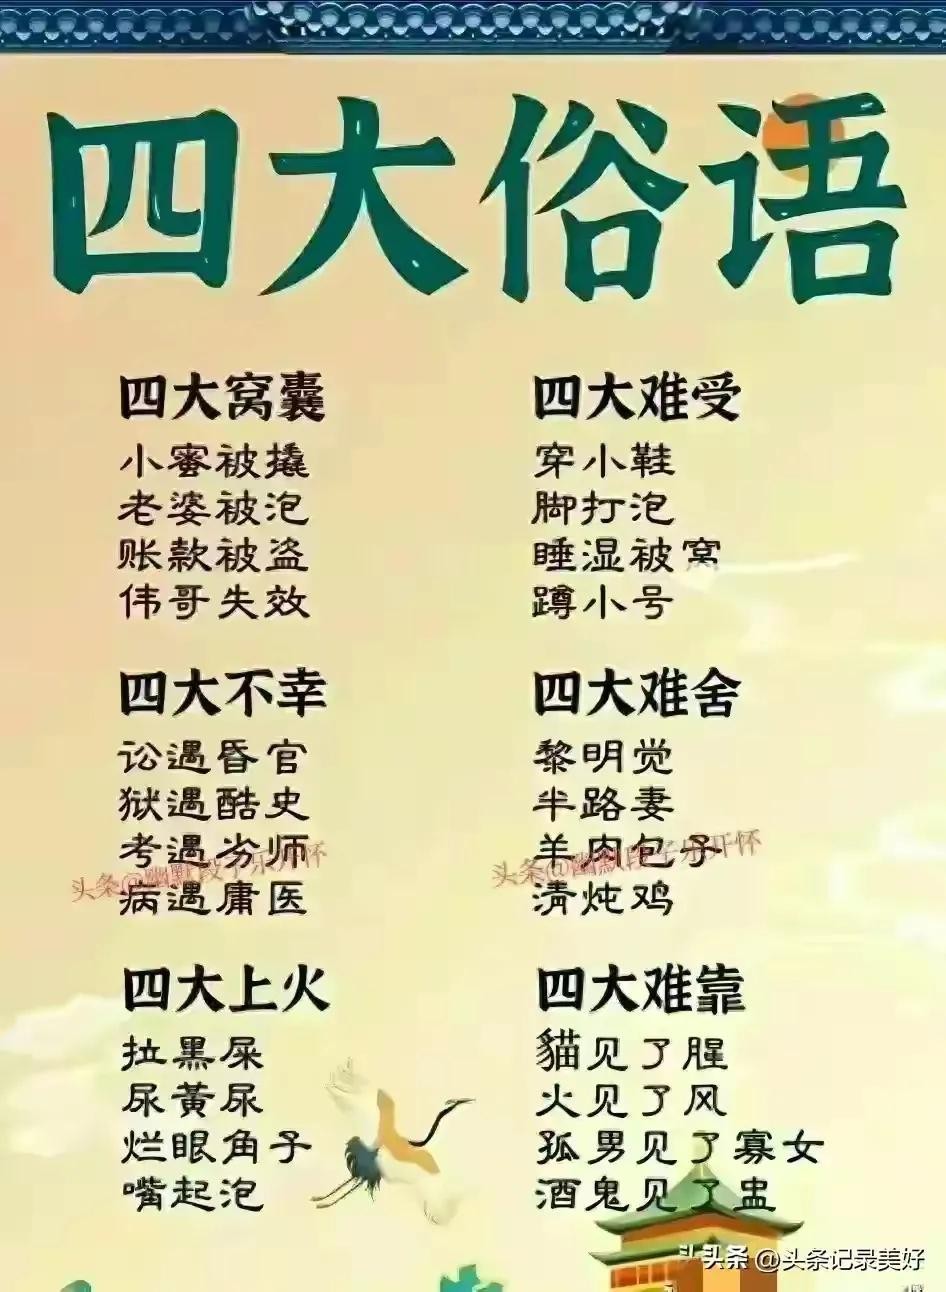 四大俗语
四大窝囊
小蜜被撬
老婆被泡
账款被盗
伟哥失效
四大难受
穿小鞋
脚打泡
睡湿被窝
蹲小号
四大不幸
讼遇昏官
狱遇酷史
考遇劣师
病遇庸医
头条@幽默段子乐开怀
四大难舍
黎明觉
半路妻
羊肉包子
清炖鸡
头条@幽默段子乐开怀
四大上火
拉黑屎
尿黄尿
烂眼角子
嘴起泡
四大难靠
貓见了腥
火见了风
孤男见了寡女
酒鬼见了盅
头条 @头条记录美好